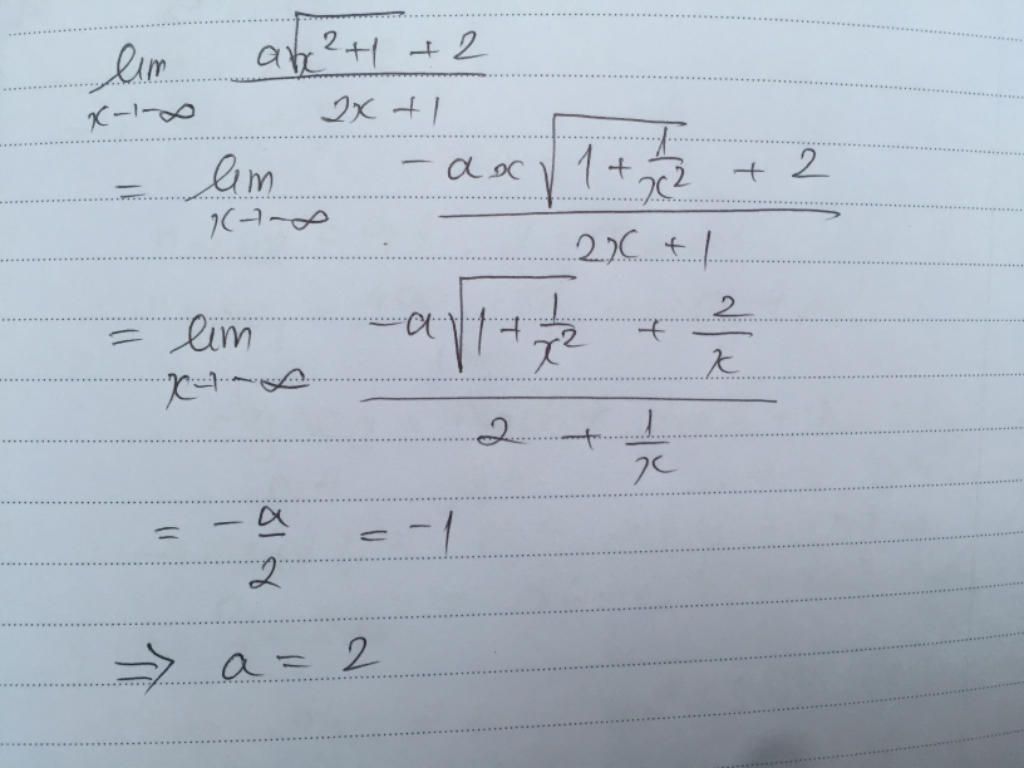 lim a√(x²+1) + 2 / 2x + 1
x→-∞
= lim -ax√(1 + 1/x²) + 2 / 2x + 1
x→-∞
= lim -a√(1 + 1/x²) + 2/x / 2 + 1/x
x→-∞
= -a/2 = -1
⇒ a = 2